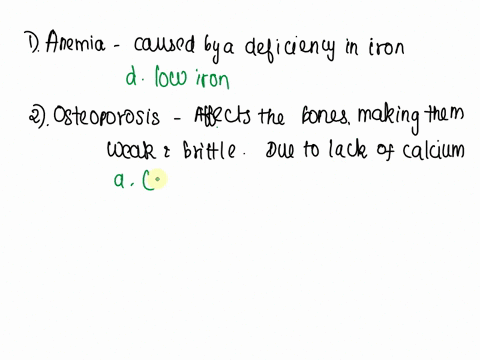 1). Anemia - caused by a deficiency in iron
d. low iron
2). Osteoporosis - Affects the bones, making them
weak & brittle. Due to lack of calcium
a. C